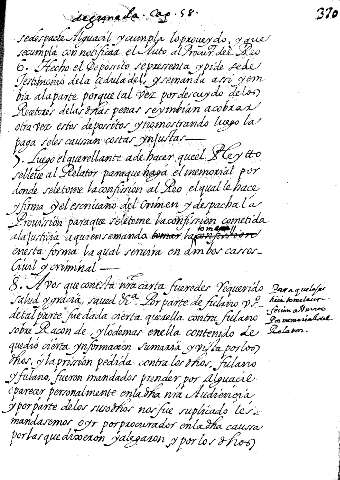 de granada. Cap. 58. 370
sedespache Alguacil y cumpla lo proueido, y que
se cumpla con notificar el Auto al Procur. del Reo
6. Hecho el Deposito se presenta y pide se de
Testimonio de la cedula del, y se manda assi y em
bia a la parte porque tal vez por descuydo de los
Reatores de las dhas penas se ymbian a cobrar
otra vez estos depositos y no mostrando luego la
paga solo causan costas ynjustas
7. Luego el querellante a de hacer que el Pleytto
se lleue al Relator para que haga el memorial por
donde se le tome la confission al Reo el qual le hace
y firma y el escriuano del Crimen y despacha la
Prouission para que se le tome la confission cometida
a la justicia a quien se manda tomar la
en esta forma la qual seruira en ambos cassos
Ciuil y criminal
8. A vos que con esta nra carta fueredes requerido
salud y gracia, sepades Por parte de fulano v.º
de tal parte fue dada cierta querella contra fulano
sobre Racon de, y lo demas en ella contenido de
que dio cierta ynformacion sumaria y vista por los
dhos, y la prission pedida contra los dhos, fulano
y fulano, fueron mandados prender por Alguacil
parecer personalmente en la dha nra Audiencia
y por parte de los susodhos nos fue suplicado les
mandasemos oyr por procurador en la dha causa
por las que dixeron y alegaron y por los dhos